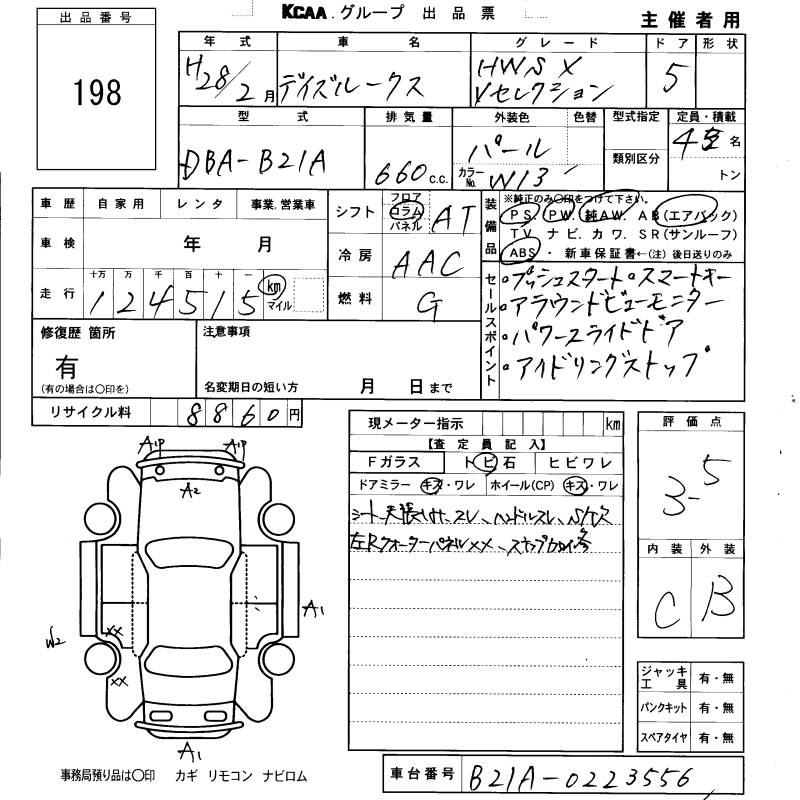 KCAA.グループ 出品票
主催者用
出品番号
198
年式 車名 グレード ドア 形状
H28/2月 デイズルークス HWS X Vセレクション 5
型式 排気量 外装色 色替 型式指定 定員・積載
DBA-B21A 660c.c. パール カラーNo. W13 類別区分 4名 トン
車歴 自家用 レンタ 事業.営業車
車検 年 月
走行 十万 万 千 百 十 一
124515 km マイル
シフト フロア コラム パネル AT
冷房 AAC
燃料 G
装備品
※純正のみ○印をつけて下さい。
PS. PW. 純AW. AB(エアバック)
TV ナビ.カワ.SR(サンルーフ)
ABS・新車保証書←(注)後日送りのみ
セールスポイント
・プッシュスタート・スマートキー
・アラウンドビューモニター
・パワースライドドア
・アイドリングストップ
修復歴 箇所
有
(有の場合は○印を)
注意事項
名変期日の短い方 月 日まで
リサイクル料 8860円
現メーター指示 km
【査定員記入】
Fガラス トビ石 ヒビワレ
ドアミラー キズ・ワレ ホイール(CP) キズ・ワレ
シート、天張りヤケ、スレ、ハンドルスレ、
左Rクォーターパネルxx、ステップ
評価点
3-5
内装 外装
C B
ジャッキ工具 有・無
パンクキット 有・無
スペアタイヤ 有・無
A1P A1P
A2
A1
W2
xx
xx
A1
事務局預り品は○印 カギ リモコン ナビロム
車台番号 B21A-0223556